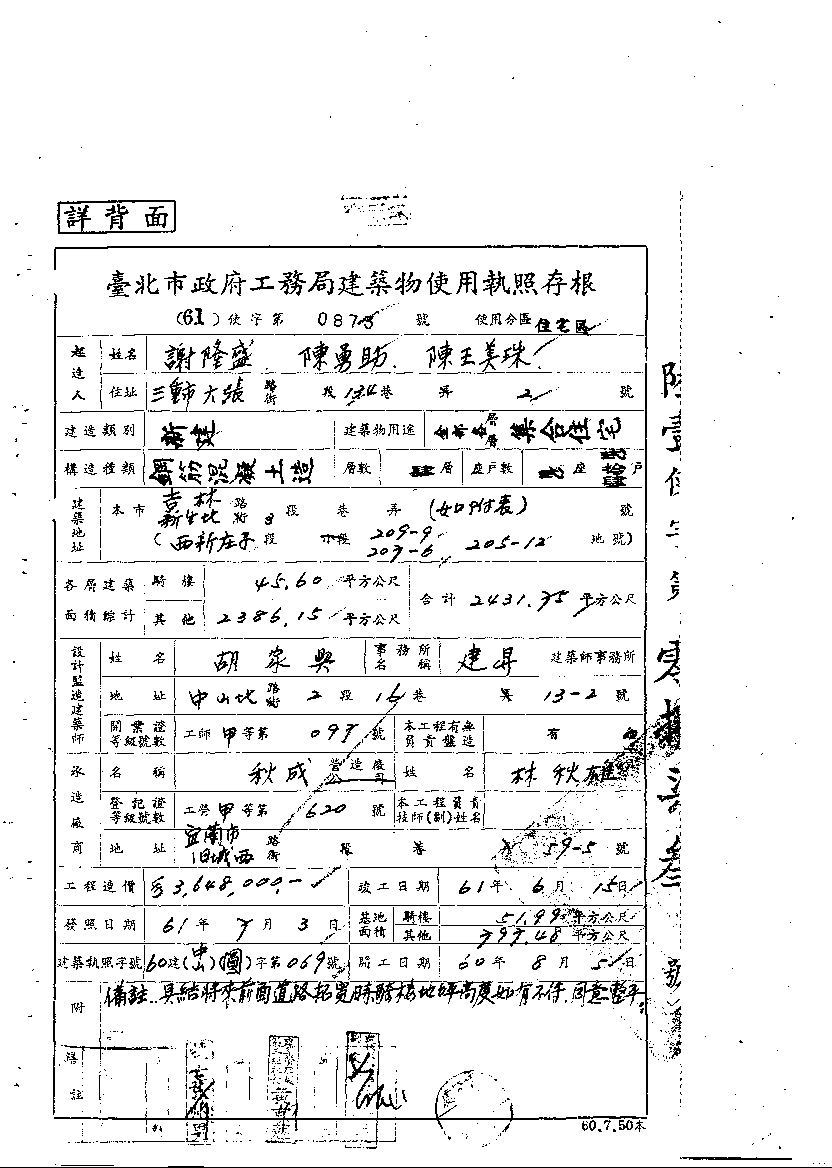 詳背面
臺北市政府工務局建築物使用執照存根
(61)使字第 0873 號 使用分區 住宅區
起造人 姓名 謝隆盛 陳勇助 陳王美珠
住址 三重市大張 路街 段 134巷 弄 2 號
建造類別 新建 建築物用途 全部各層 集合住宅
構造種類 鋼筋混凝土造 層數 層 座戶數 座 戶
建築地址 本市 吉林 新生北 路街 3段 巷 弄 (如附表) 號
(西新庄子段 小段 209-9 207-6 205-12 地號)
各層建築面積綜計 騎樓 45.60 平方公尺 合計 2431.75 平方公尺
其他 2386.15 平方公尺
設計監造建築師 姓名 胡家興 事務所名稱 建昇 建築師事務所
地址 中山北 路街 2段 16巷 弄 13-2 號
開業證等級號數 工師甲等第 097 號 本工程有無員責監造 有
承造廠商 名稱 秋成 營造廠公司 姓名 林秋雄
登記證等級號數 工營甲等第 620 號 本工程員責技師(副)姓名
地址 宜蘭市旧城西 路街 段 巷 59-5 號
工程造價 $3,648,000.- 竣工日期 61年 6月 15日
發照日期 61年 7月 3日 基地面積 騎樓 51.99 平方公尺
其他 797.48 平方公尺
建築執照字號 60建(中山)(圖)字第069號 開工日期 60年 8月 5日
附 備註:具結將來前面道路拓寬時騎樓地坪高度如有不符,同意整平。
註
60.7.50本